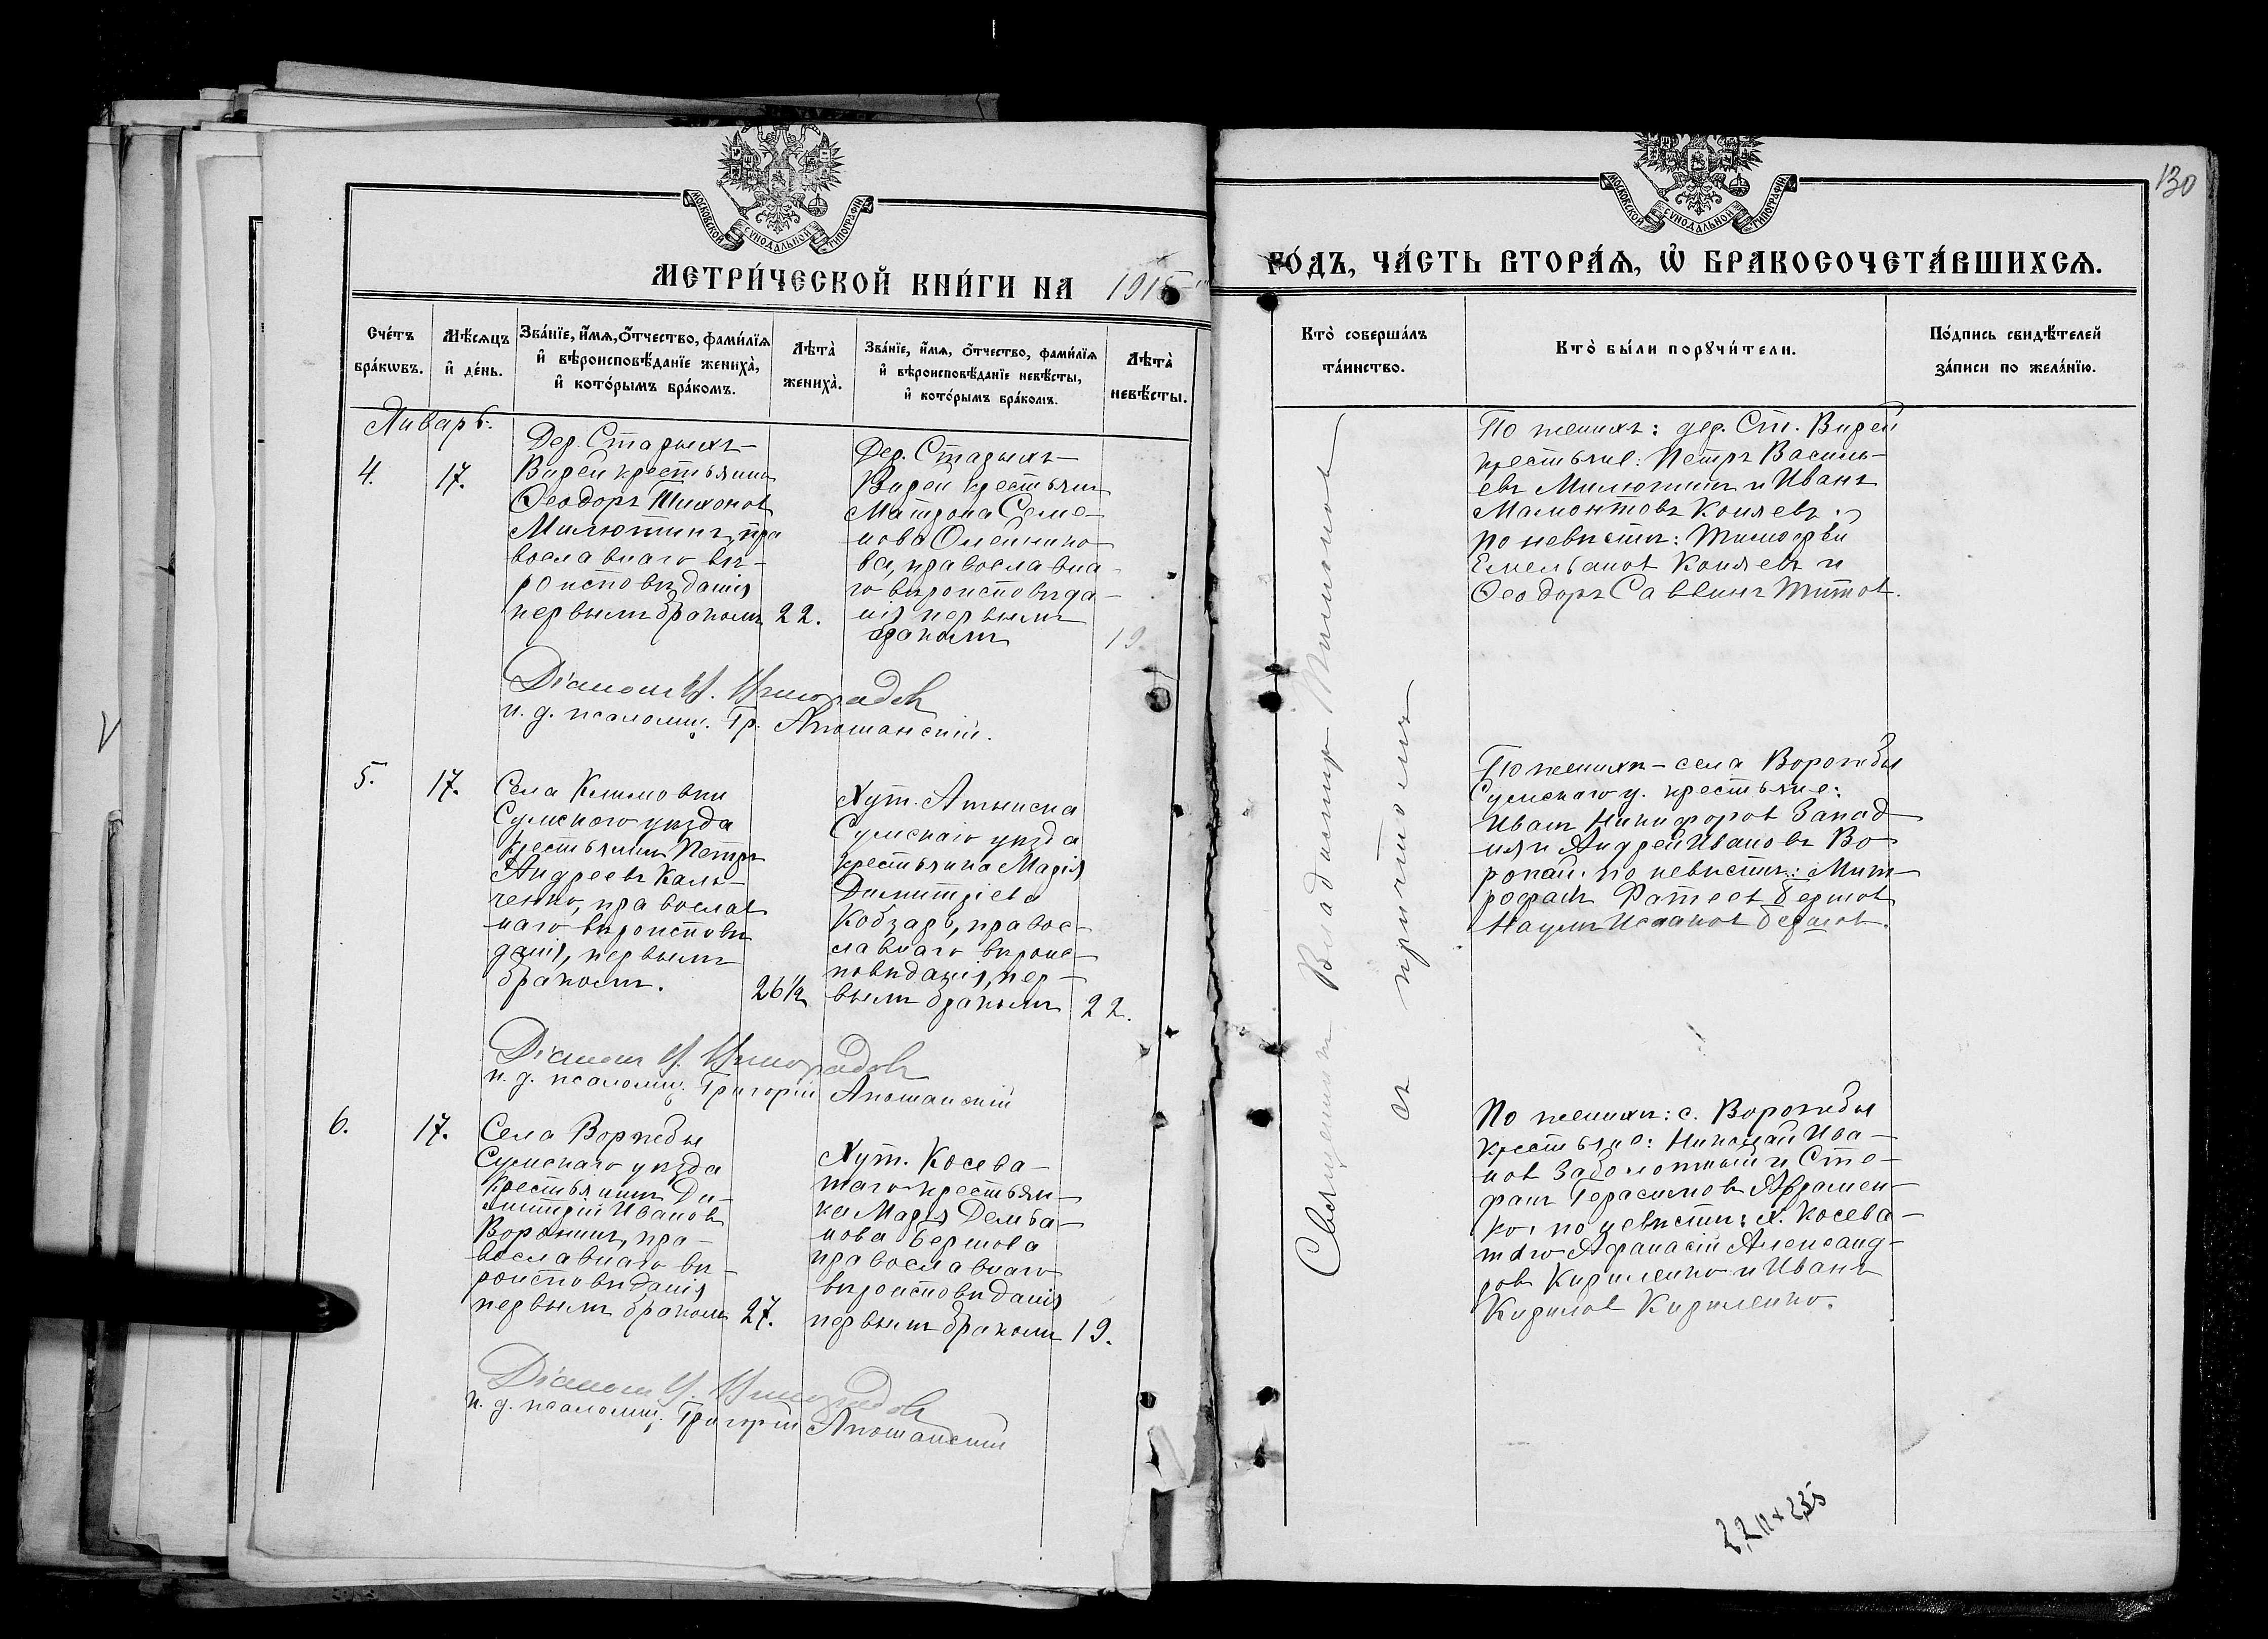 130
МОСКОВСКОЙ СУНОДАЛЬНОЙ ТИПОГРАФІИ
МОСКОВСКОЙ СУНОДАЛЬНОЙ ТИПОГРАФІИ
МЕТРИ́ЧЕСКОЙ КНИ́ГИ НА 1915
ГО́ДЪ, ЧА́СТЬ ВТОРА́Ѧ, Ѡ БРАКОСОЧЕТА́ВШИХСѦ.
Сче́тъ бра́кѡвъ.
Мѣ́сѧцъ и҆ де́нь.
Зва́нїе, и҆́мѧ, ѻ҆́тчество, фами́лїѧ
и҆ вѣроисповѣ́данїе жениха̀,
и҆ кото́рымъ бра́комъ.
Лѣта̀ жениха̀.
Зва́нїе, и҆́мѧ, ѻ҆́тчество, фами́лїѧ
и҆ вѣроисповѣ́данїе невѣ́сты,
и҆ кото́рымъ бра́комъ.
Лѣта̀ невѣ́сты.
Кто̀ соверша́лъ
та́инство.
Кто̀ бы́ли порꙋчи́тели.
По́дпись свидѣ́телей
за́писи по жела́нїю.
Январь.
4.
17.
Дер. Старыхъ-
Вирей крестьянинъ
Ѳеодоръ Тихоновъ
Милютинъ, пра
вославнаго вѣ-
роисповѣданія
первымъ бракомъ
22.
Дер. Старыхъ-
Вирей крестьян
Матрона Семе-
нова Олейнико-
ва, православна-
го вѣроисповѣда-
нія первымъ
бракомъ
19.
По женихѣ: дер. Ст. Вирей
крестьяне: Петръ Василь-
евъ Милютинъ и Иванъ
Мамонтовъ Коняевъ;
по невѣстѣ: Тимофей
Емельановъ Коняевъ и
Ѳеодоръ Саввинъ Титов.
Діаконъ
и. д. псаломщ. Гр.
5.
17.
Села Климовки
Сумскаго уѣзда
крестьянинъ Петръ
Андреевъ Каль-
ченко, православ
наго вѣроисповѣ
данія, первымъ
бракомъ.
26½
Хут.
Сумскаго уѣзда
крестьянка Марія
Димитріева
Кобзарь, правос-
лавнаго вѣроис-
повѣданія, пер-
вымъ бракомъ
22.
По женихѣ - села Ворожбы
Сумскаго у. крестьяне:
Иванъ Никифоров Запад
ня и Андрей Ивановъ Во-
ропай. по невѣстѣ: Мит-
рофанъ Фотеев Бершов
Наумъ Бершов.
Діаконъ
и. д. псаломщ. Григорій
6.
17.
Села Воржбы
Сумскаго уѣзда
крестьянинъ Ди-
митрій Иванов
Воронинъ, пра-
вославнаго вѣ-
роисповѣданія
первымъ бракомъ
27.
Хут. Косева-
таго крестьян-
ка Марія Демья-
нова Бершова
православнаго
вѣроисповѣданія
первымъ бракомъ
19.
По женихѣ: с. Ворожбы
крестьяне: Николай Ива-
нов Заболотный и Сте-
фанъ Герасимовъ Авдамен-
ко. по невѣстѣ: х. Косева-
таго Афанасій Александ-
ров Кириленко и Иванъ
Кирилов Кириленко.
Діаконъ
и. д. псаломщ. Григорій
Священникъ Владиміръ
съ причтомъ